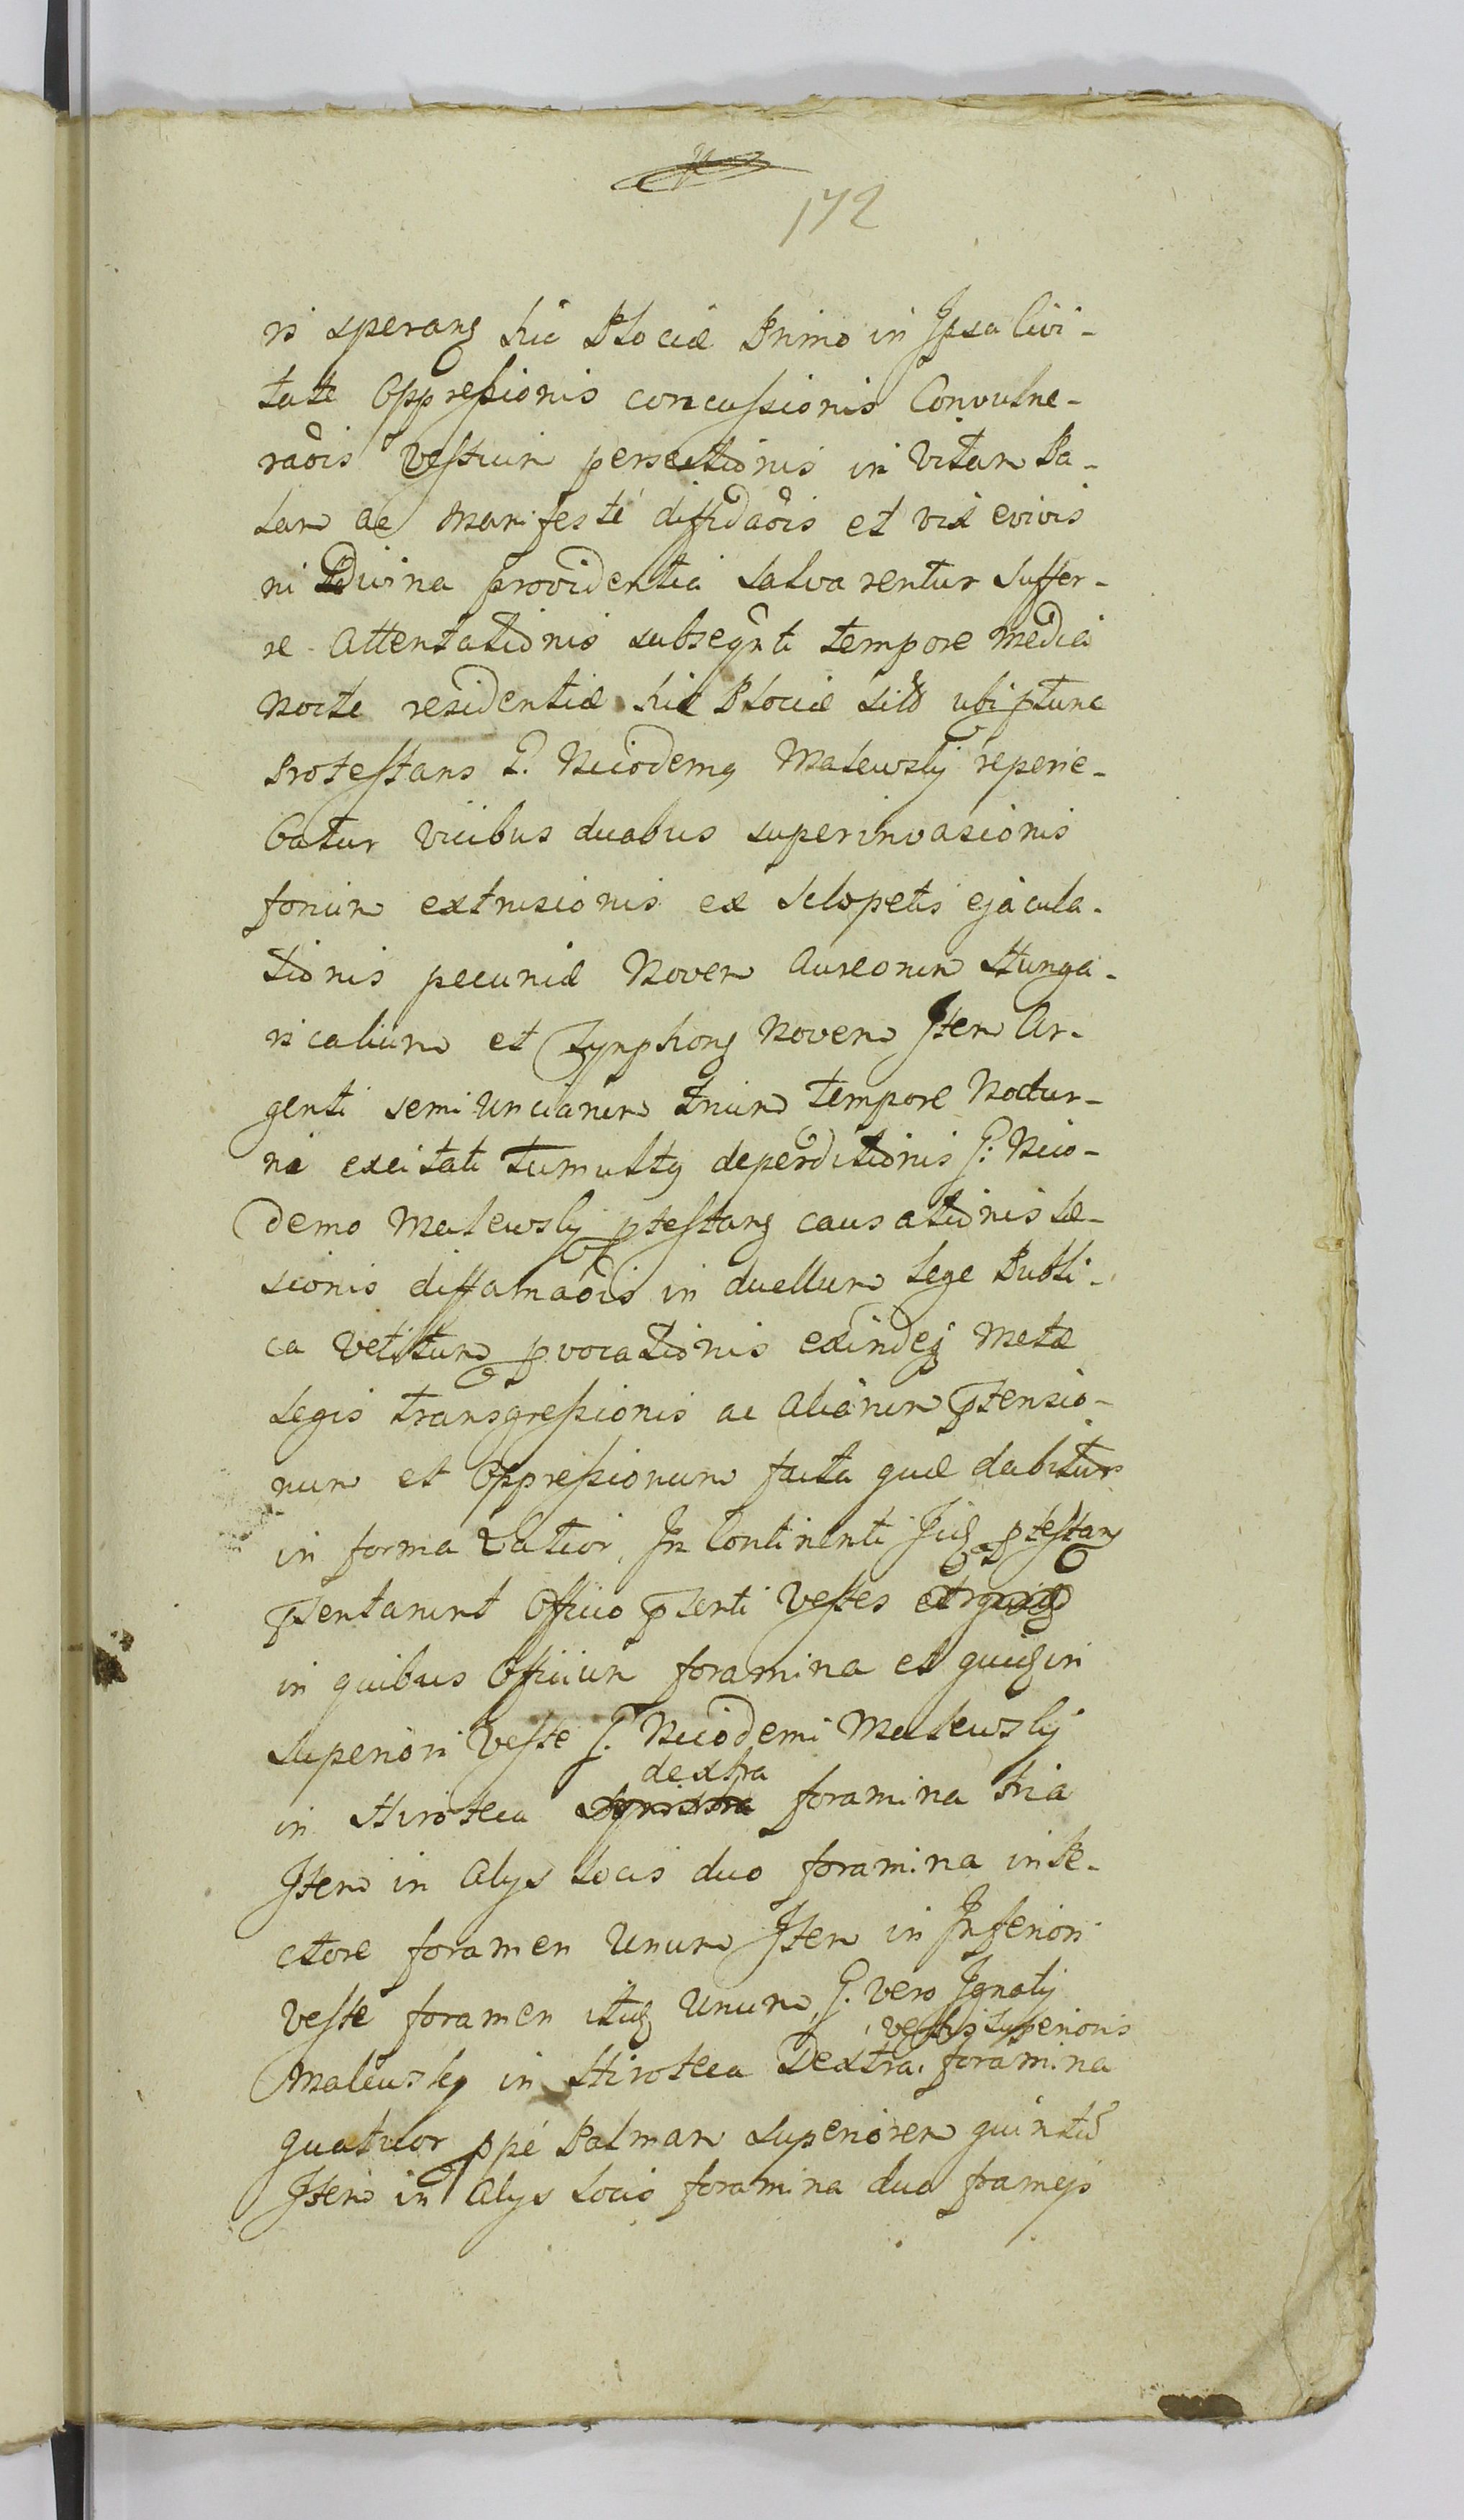 172
ri sperans hic Plociæ Primo in Ipsa Civi-
tate Oppressionis concussionis Convulne-
raōis Vestium persectionis in Vitam Pa-
lam ac manifesté diffidaōis et vix evivis
ni Divina providentia salvarentur suffer-
re Attentationis subseqnti tempore media
Nocte residentiæ hic Plociæ ubi ptunc
Protestans G. Nicodemq Malewskij reperie-
batur vicibus duabus superinvasionis
forium extrusionis ex Sclopetis ejacula-
tionis pecuniæ Novem Aureorum Hunga-
ricalium et Tynphons Novem Item Ar-
genti semi Unciarum trium tempore Noctur-
ni excitati tumultq deperditionis G. Nico-
demo Malewskij ptestans causationis Læ-
sionis diffamaōis in duellum Lege Publi-
ca Vetitum pvocationis exindeq Metæ
Legis transgressionis ac Aliarum ptensio-
num et Oppressionum facta quæ dabitur
in forma Latior. In Continenti Iidq ptestans
psentarunt Officio psenti Vestes
in quibus Officium foramina et quidq in
superiori Veste G. Nicodemi Malewskij
in Hiroteca dextra foramina tria
Item in Alys Locis duo foramina in Pe-
ctore foramen Unum Item in Inferiori
Veste foramen itidq Unum, G. vero Ignatij
Malewsky in Hiroteca Dextra vestis superioris foramina
quatuor ppé Palmam superiorem quintū
Item in Alys Locis foramina duo